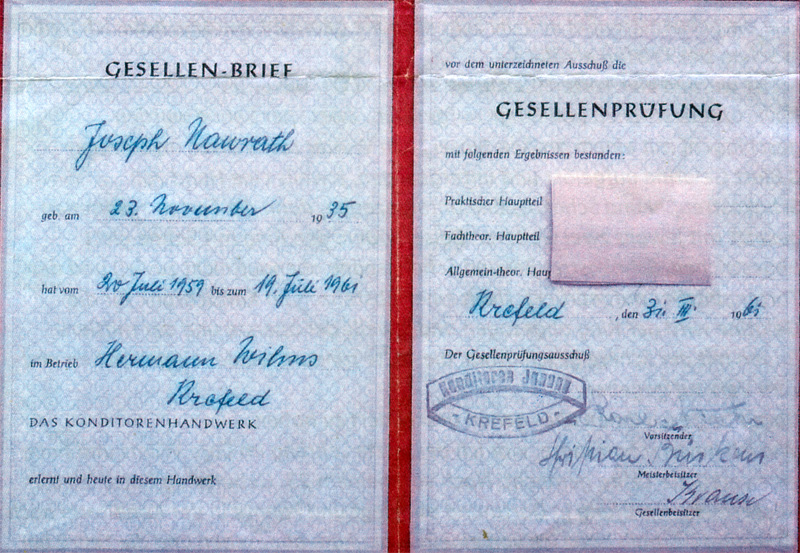 GESELLEN-BRIEF
Joseph Nawrath
geb. am 23. November 1935
hat vom 20 Juli 1959 bis zum 19. Juli 1961
im Betrieb Hermann Wilms
Krefeld
DAS KONDITORENHANDWERK
erlernt und heute in diesem Handwerk
vor dem unterzeichneten Ausschuß die
GESELLENPRÜFUNG
mit folgenden Ergebnissen bestanden:
Praktischer Hauptteil
Fachtheor. Hauptteil
Allgemein-theor. Hau
Krefeld, den 31. III. 1961
Der Gesellenprüfungsausschuß
Konditoren Innung
- KREFELD -
Vorsitzender
Meisterbeisitzer
Gesellenbeisitzer